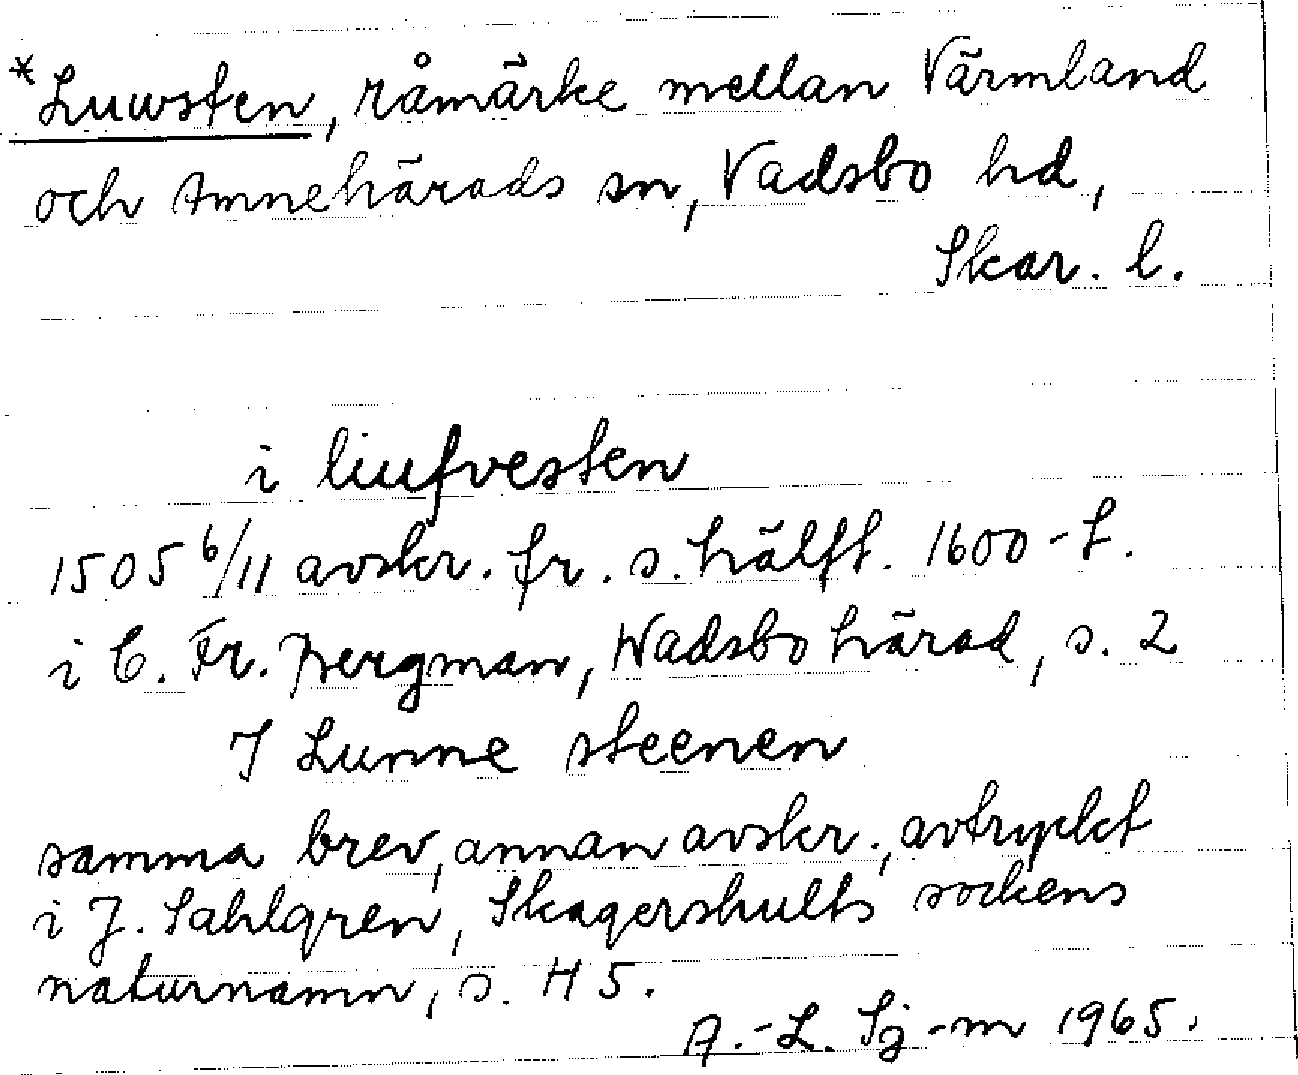 *Luwsten, råmärke mellan Värmland
och Amnehärads sn, Vadsbo hd,
Skar. l.
i liufvesten
1505 6/11 avskr. fr. s. hälft. 1600-t.
i C. Fr. Bergman, Wadsbo härad, s. 2
I Lunne steenen
samma brev, annan avskr., avtryckt
i J. Sahlgren, Skagershults sockens
naturnamn, s. H 5.
A.-L. Sj-m 1965.